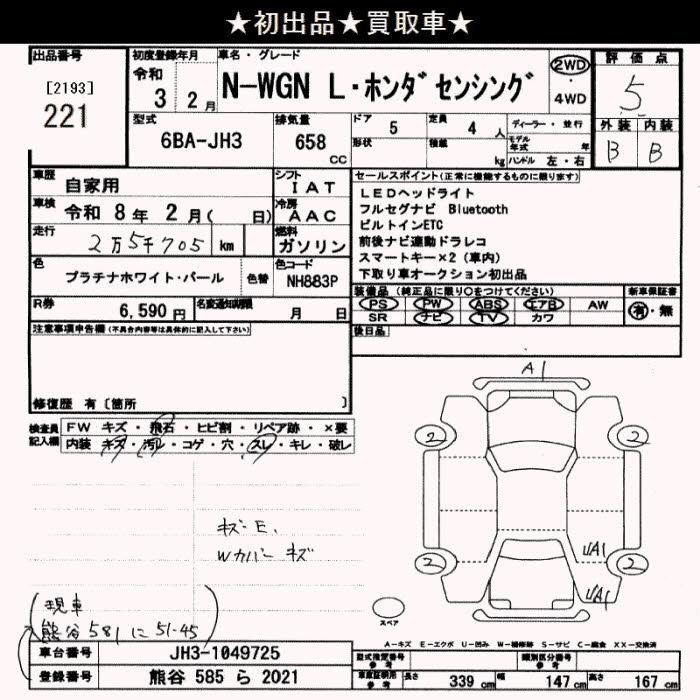 ★初出品★買取車★
出品番号
[2193]
221
初度登録年月
令和
3 2月
車名・グレード
N-WGN L・ホンダセンシング
2WD
・
4WD
評価点
5
型式
6BA-JH3
排気量
658
cc
ドア
5
定員
4 人
形状
積載
kg
ディーラー・並行
モデル年式 年
ハンドル 左・右
外装 内装
B B
車歴
自家用
シフト
IAT
車検
令和 8年 2月( 日)
冷房
AAC
走行
2万5千705 km
燃料
ガソリン
色
プラチナホワイト・パール
色替
色コード
NH883P
R券
6,590円
名変通知期限
月 日
セールスポイント(正常に機能するものに限ります)
LEDヘッドライト
フルセグナビ Bluetooth
ビルトインETC
前後ナビ連動ドラレコ
スマートキー×2(車内)
下取り車オークション初出品
装備品(純正品に限り○をつけてください)
PS PW ABS エアB AW
SR ナビ TV カワ
新車保証書
有・無
後日品
注意事項申告欄(不具合内容等は具体的に記入して下さい)
修復歴 有〔箇所 〕
検査員記入欄
FW キズ・飛石・ヒビ割・リペア跡・×要
内装 キズ・汚レ・コゲ・穴・スレ・キレ・破レ
キズE.
Wカバーキズ
A1
2 2
UA1
2 2
UA1
スペア
(現車
熊谷581に51-45)
A-キズ E-エクボ U-凹み W-補修跡 S-サビ C-腐食 XX-交換済
車台番号
JH3-1049725
登録番号
熊谷 585 ら 2021
型式指定番号
参考
類別区分番号
参考
車庫証明用
参考
長さ 339cm 幅 147cm 高さ 167cm